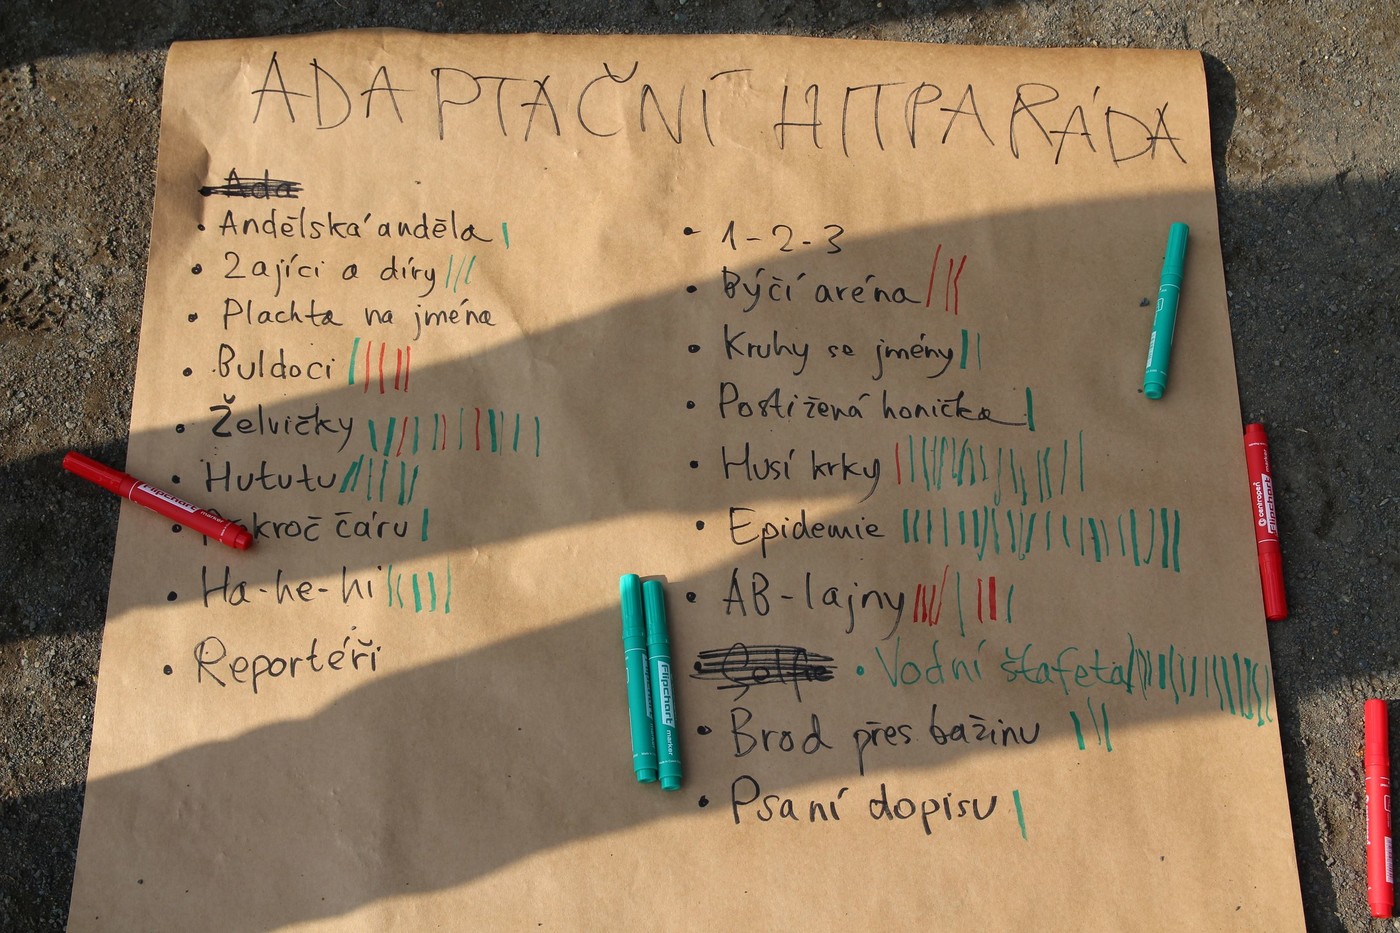 ADAPTAČNÍ HITPARÁDA
Ada
• Andělská anděla
• Zajíci a díry
• Plachta na jména
• Buldoci
• Želvičky
• Hututu
kroč čáru
• Ha-he-hi
• Reportéři
• 1-2-3
• Býčí aréna
• Kruhy se jmény
• Postižená honička
• Husí krky
• Epidemie
• AB-lajny
Selfie • Vodní štafeta
• Brod přes bažinu
• Psaní dopisu
Flipchart marker
Flipchart marker
centropen Flipchart marker